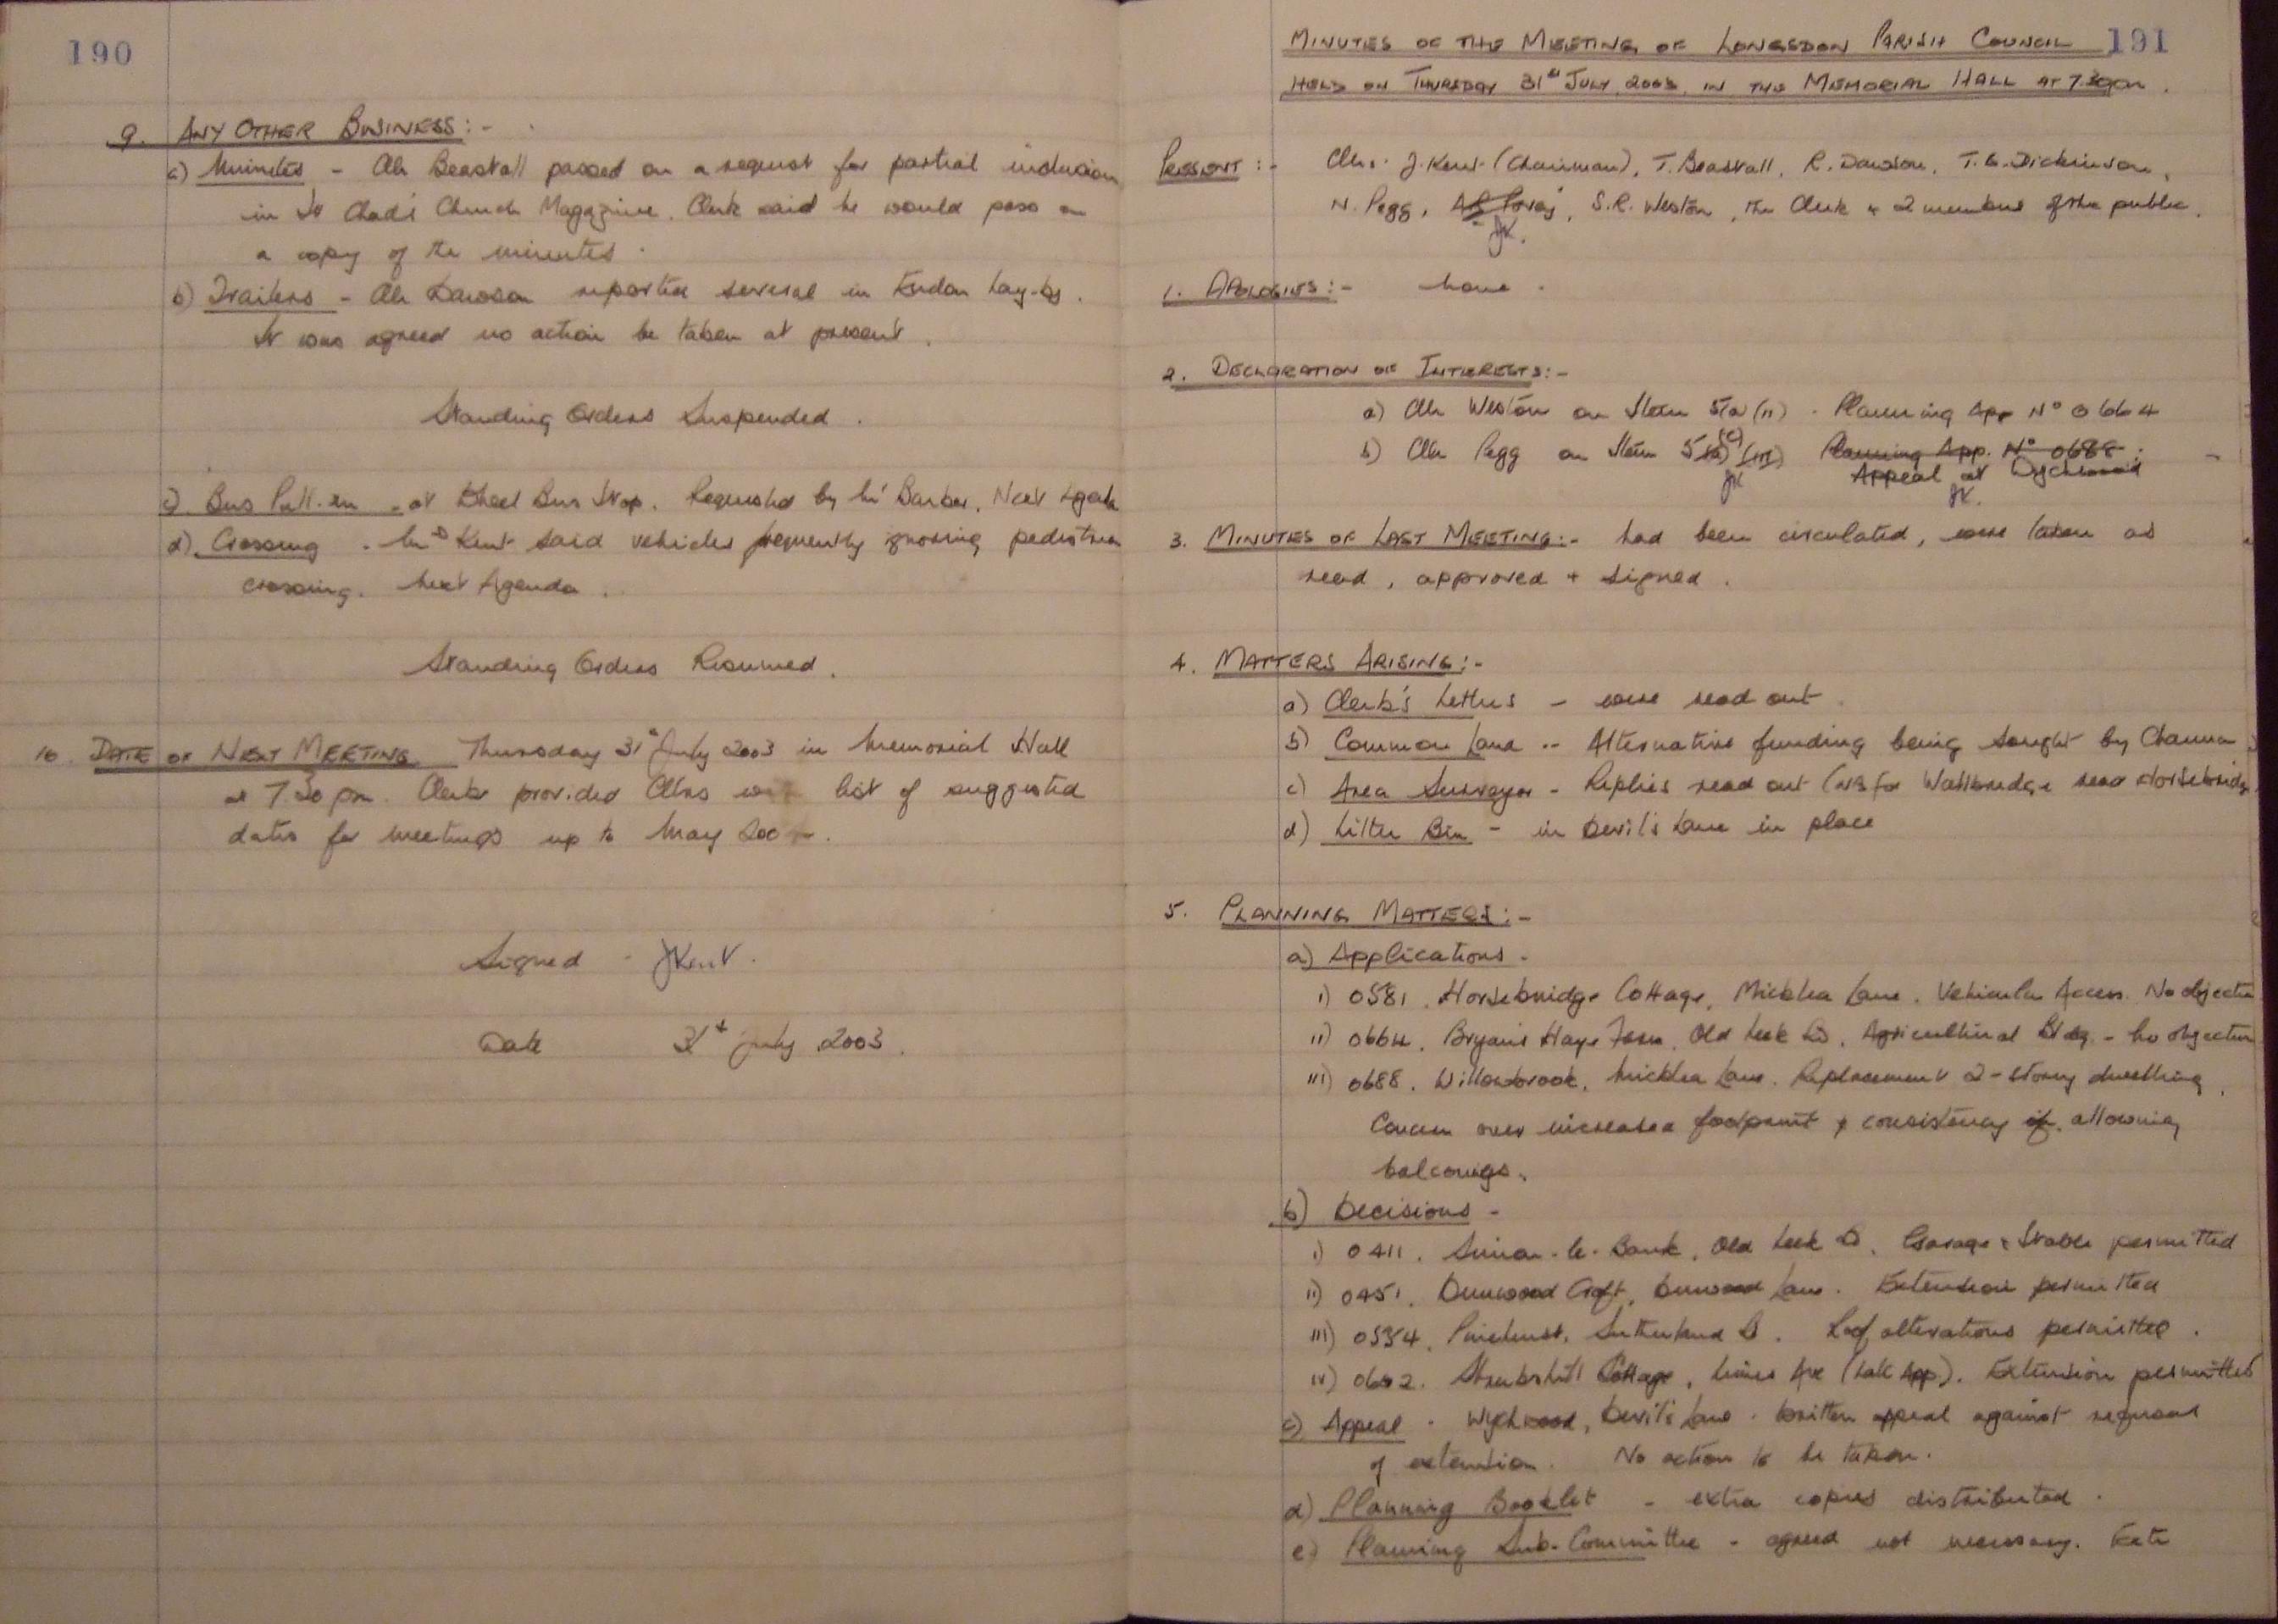 190
9. ANY OTHER BUSINESS:-
a) Minutes - Cllr Beastall passed on a request for partial inclusion
in St Chad's Church Magazine. Clerk said he would pass on
a copy of the minutes.
b) Trailers - Cllr Dawson reported several in Endon Lay-by.
It was agreed no action be taken at present.
Standing Orders Suspended.
c) Bus Pull-in - at Wheel Bus Stop. Requested by Mr Barber. Next Agenda
d) Crossing - Mrs Kent said vehicles frequently ignoring pedestrian
crossing. Next Agenda.
Standing Orders Resumed.
10. DATE OF NEXT MEETING Thursday 31st July 2003 in Memorial Hall
at 7.30pm. Clerk provided Cllrs list of suggested
dates for meetings up to May
Signed - JKent.
Date 31st July 2003.
191
MINUTES OF THE MEETING OF LONGSDON PARISH COUNCIL
HELD ON THURSDAY 31st JULY 2003, IN THE MEMORIAL HALL AT 7.30pm.
PRESENT:- Cllrs. J. Kent (Chairman), T. Beastall, R. Dawson, T.G. Dickinson,
N. Pegg, S.R. Weston, the Clerk + 2 members of the public.
JK.
1. APOLOGIES:- None.
2. DECLARATION OF INTERESTS:-
a) Cllr Weston on Item 5(a)(ii) - Planning App No 0664
b) Cllr Pegg on Item 5(a)(c)(iii) Planning App. No 0688.
JK Appeal at Wychwood
JK.
3. MINUTES OF LAST MEETING:- had been circulated, were taken as
read, approved + signed.
4. MATTERS ARISING:-
a) Clerk's Letters - were read out.
b) Common Land -- Alternative funding being sought by
c) Area Surveyor - Replies read out (NB for Wallbridge read Horsebridge
d) Litter Bin - in Devil's Lane in place
5. PLANNING MATTERS:-
a) Applications -
i) 0581. Horsebridge Cottage, Micklea Lane. Vehicular Access. No objection
ii) 0664. Bryan's Hays Farm, Old Leek Rd. Agricultural Bldg. - No objection
iii) 0688. Willowbrook, Micklea Lane. Replacement 2-storey dwelling.
Concern over increased footprint & consistency if allowing
balconies.
b) Decisions -
i) 0411. Old Leek Rd, Garage & Stable permitted
ii) 0451. Dunwood Croft, Dunwood Lane. Extension permitted
iii) 0534. Pinehurst, Sutherland Rd. Roof alterations permitted.
iv) Cottage, (Late App). Extension permitted
c) Appeal - Wychwood, Devil's Lane - Written appeal against refusal
of extension. No action to be taken.
d) Planning Booklet - extra copies distributed.
e) Planning Sub-Committee - agreed not necessary.